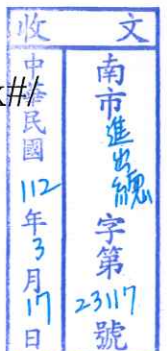 收文
南市進出總字第23117號
中華民國112年3月17日
k#/